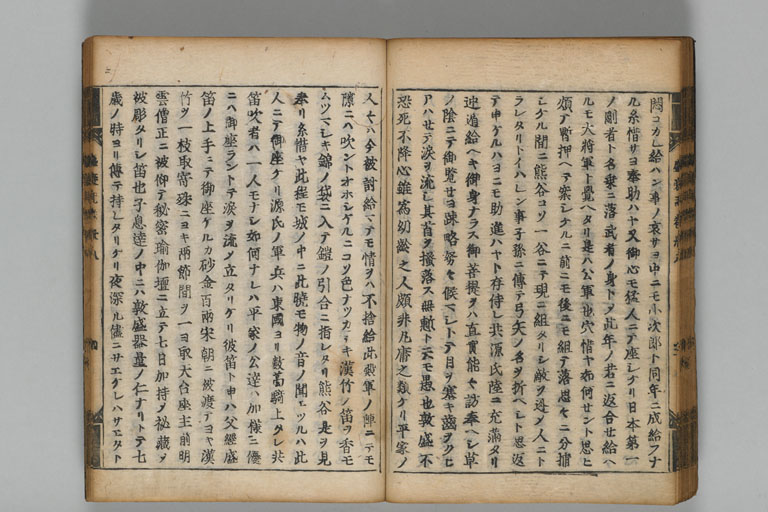 悶コカレ給ハン事ノ哀サヨ中ニモ小次郎ト同年ニ成給フナ
ル糸惜サヨ奉助ハヤ又御心モ猛人ニテ座シケリ日本第一
ノ剛者ト名乗ニ落武者ノ身トメ此年ノ若ニ返合セ給ヘ
ルモ大将軍ト覺ヘタリ是ハ公軍也穴惜ヤ如何セント思ヒ
煩テ暫押ヘテ案シケルニ前ニモ後ニモ組テ落思々ニ分捕
シケル間ニ熊谷コソ一谷ニテ現ニ組タリシ敵ヲ逃メ人ニト
ラレタリトイハレン事子孫ニ傳テ弓矢ノ名ヲ折ヘシト思返
テ申ケルハヨニモ助進ハヤト存侍レ共源氏陸ニ充満タリ
迚遁給ヘキ御身ナラス御菩提ヲハ直實能々訪奉ヘシ草
ノ陰ニテ御覧セヨ疎略努々候マシトテ目ヲ塞キ齒ヲクヒ
アハセテ涙ヲ流シ其首ヲ掻落ス無慙ト云モ愚也敦盛不
恐死不降心雖為幼齢之人頗非凡庸之類ケリ平家ノ
人々ハ今被討給マテモ情ヲハ不捨給此殿軍ノ陣ニテモ
隙ニハ吹ントオホシケルニコソ色ナツカシキ漢竹ノ笛ヲ香モ
ムツマシキ錦ノ袋ニ入テ鎧ノ引合ニ指レタリ熊谷是ヲ見
奉リ糸惜ヤ此程モ城ノ中ニ此曉モ物ノ音ノ聞エツルハ此
人ニテ御座ケリ源氏ノ軍兵ハ東國ヨリ數萬騎上タレ共
笛吹者ハ一人モナシ如何ナレハ平家ノ公達ハ加様ニ優
ニハ御座ラントテ涙ヲ流メ立タリケリ彼笛ト申ハ父經盛
笛ノ上手ニテ御座ケルカ砂金百兩宋朝ニ被渡テヨキ漢
竹ヲ一枝取寄殊ニヨキ兩節間ヲ一ヨ取天台座主前明
雲僧正ニ被仰テ秘密瑜伽壇ニ立テ七日加持メ秘藏メ
被彫タリシ笛也子息達ノ中ニハ敦盛器量ノ仁ナリトテ七
歳ノ時ヨリ傳テ持レタリケリ夜深ル儘ニサエケレハサエタト